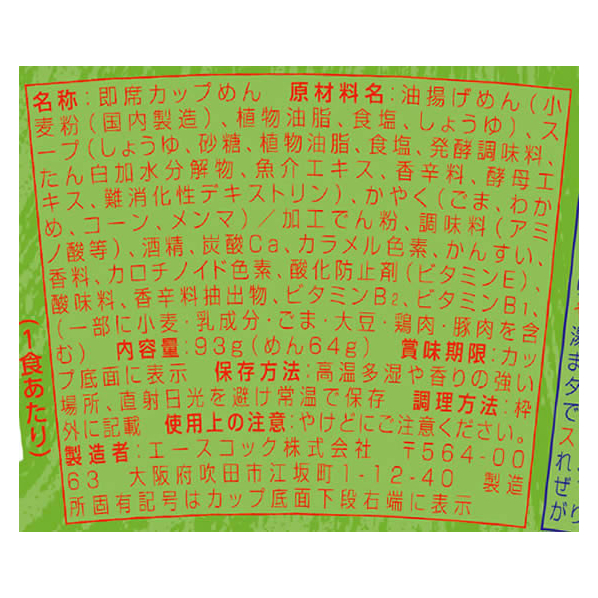 名称:即席カップめん 原材料名:油揚げめん(小
麦粉(国内製造)、植物油脂、食塩、しょうゆ)、ス
ープ(しょうゆ、砂糖、植物油脂、食塩、発酵調味料、
たん白加水分解物、魚介エキス、香辛料、酵母エ
キス、難消化性デキストリン)、かやく(ごま、わか
め、コーン、メンマ)/加工でん粉、調味料(アミ
ノ酸等)、酒精、炭酸Ca、カラメル色素、かんすい、
香料、カロチノイド色素、酸化防止剤(ビタミンE)、
酸味料、香辛料抽出物、ビタミンB2、ビタミンB1、
(一部に小麦・乳成分・ごま・大豆・鶏肉・豚肉を含
む) 内容量:93g(めん64g) 賞味期限:カッ
プ底面に表示 保存方法:高温多湿や香りの強い
場所、直射日光を避け常温で保存 調理方法:枠
外に記載 使用上の注意:やけどにご注意ください。
製造者:エースコック株式会社 〒564-00
63 大阪府吹田市江坂町1-12-40 製造
所固有記号はカップ底面下段右端に表示
(1食あたり)